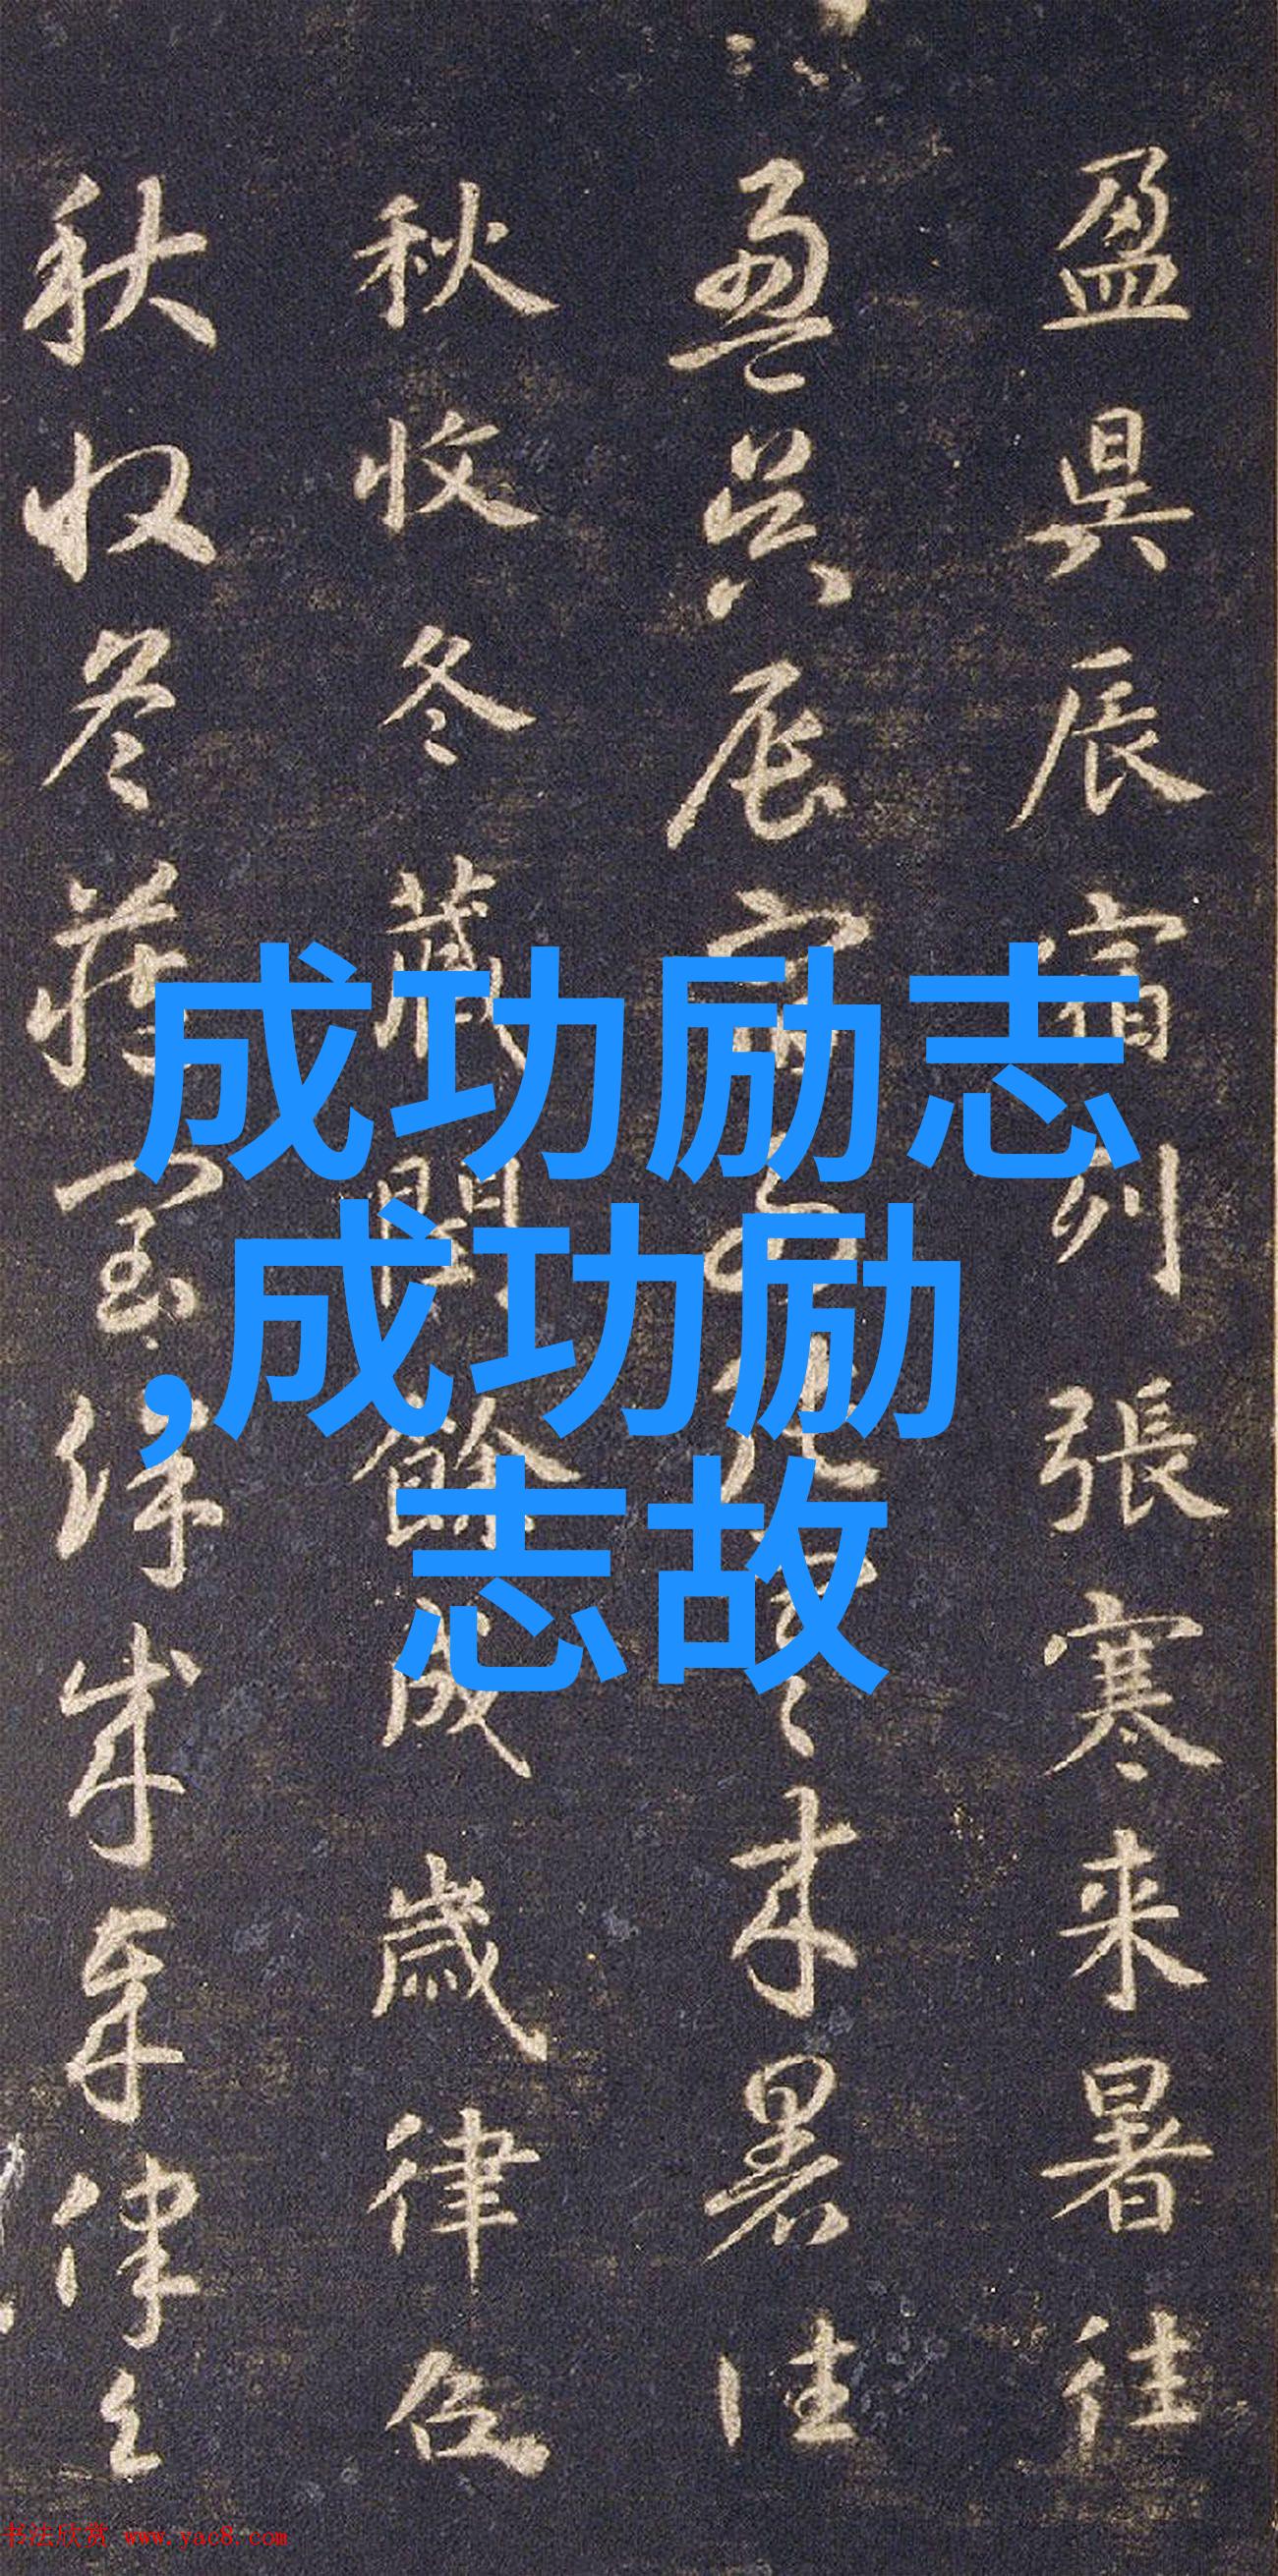 盈昃辰宿列張寒来暑往
盈昃辰宿列張寒来暑往
秋收冬藏閏餘成歲律召
秋收冬藏閏餘成歲律召
成功励志
,成功励
志故
书法欣赏 www.yac8.com